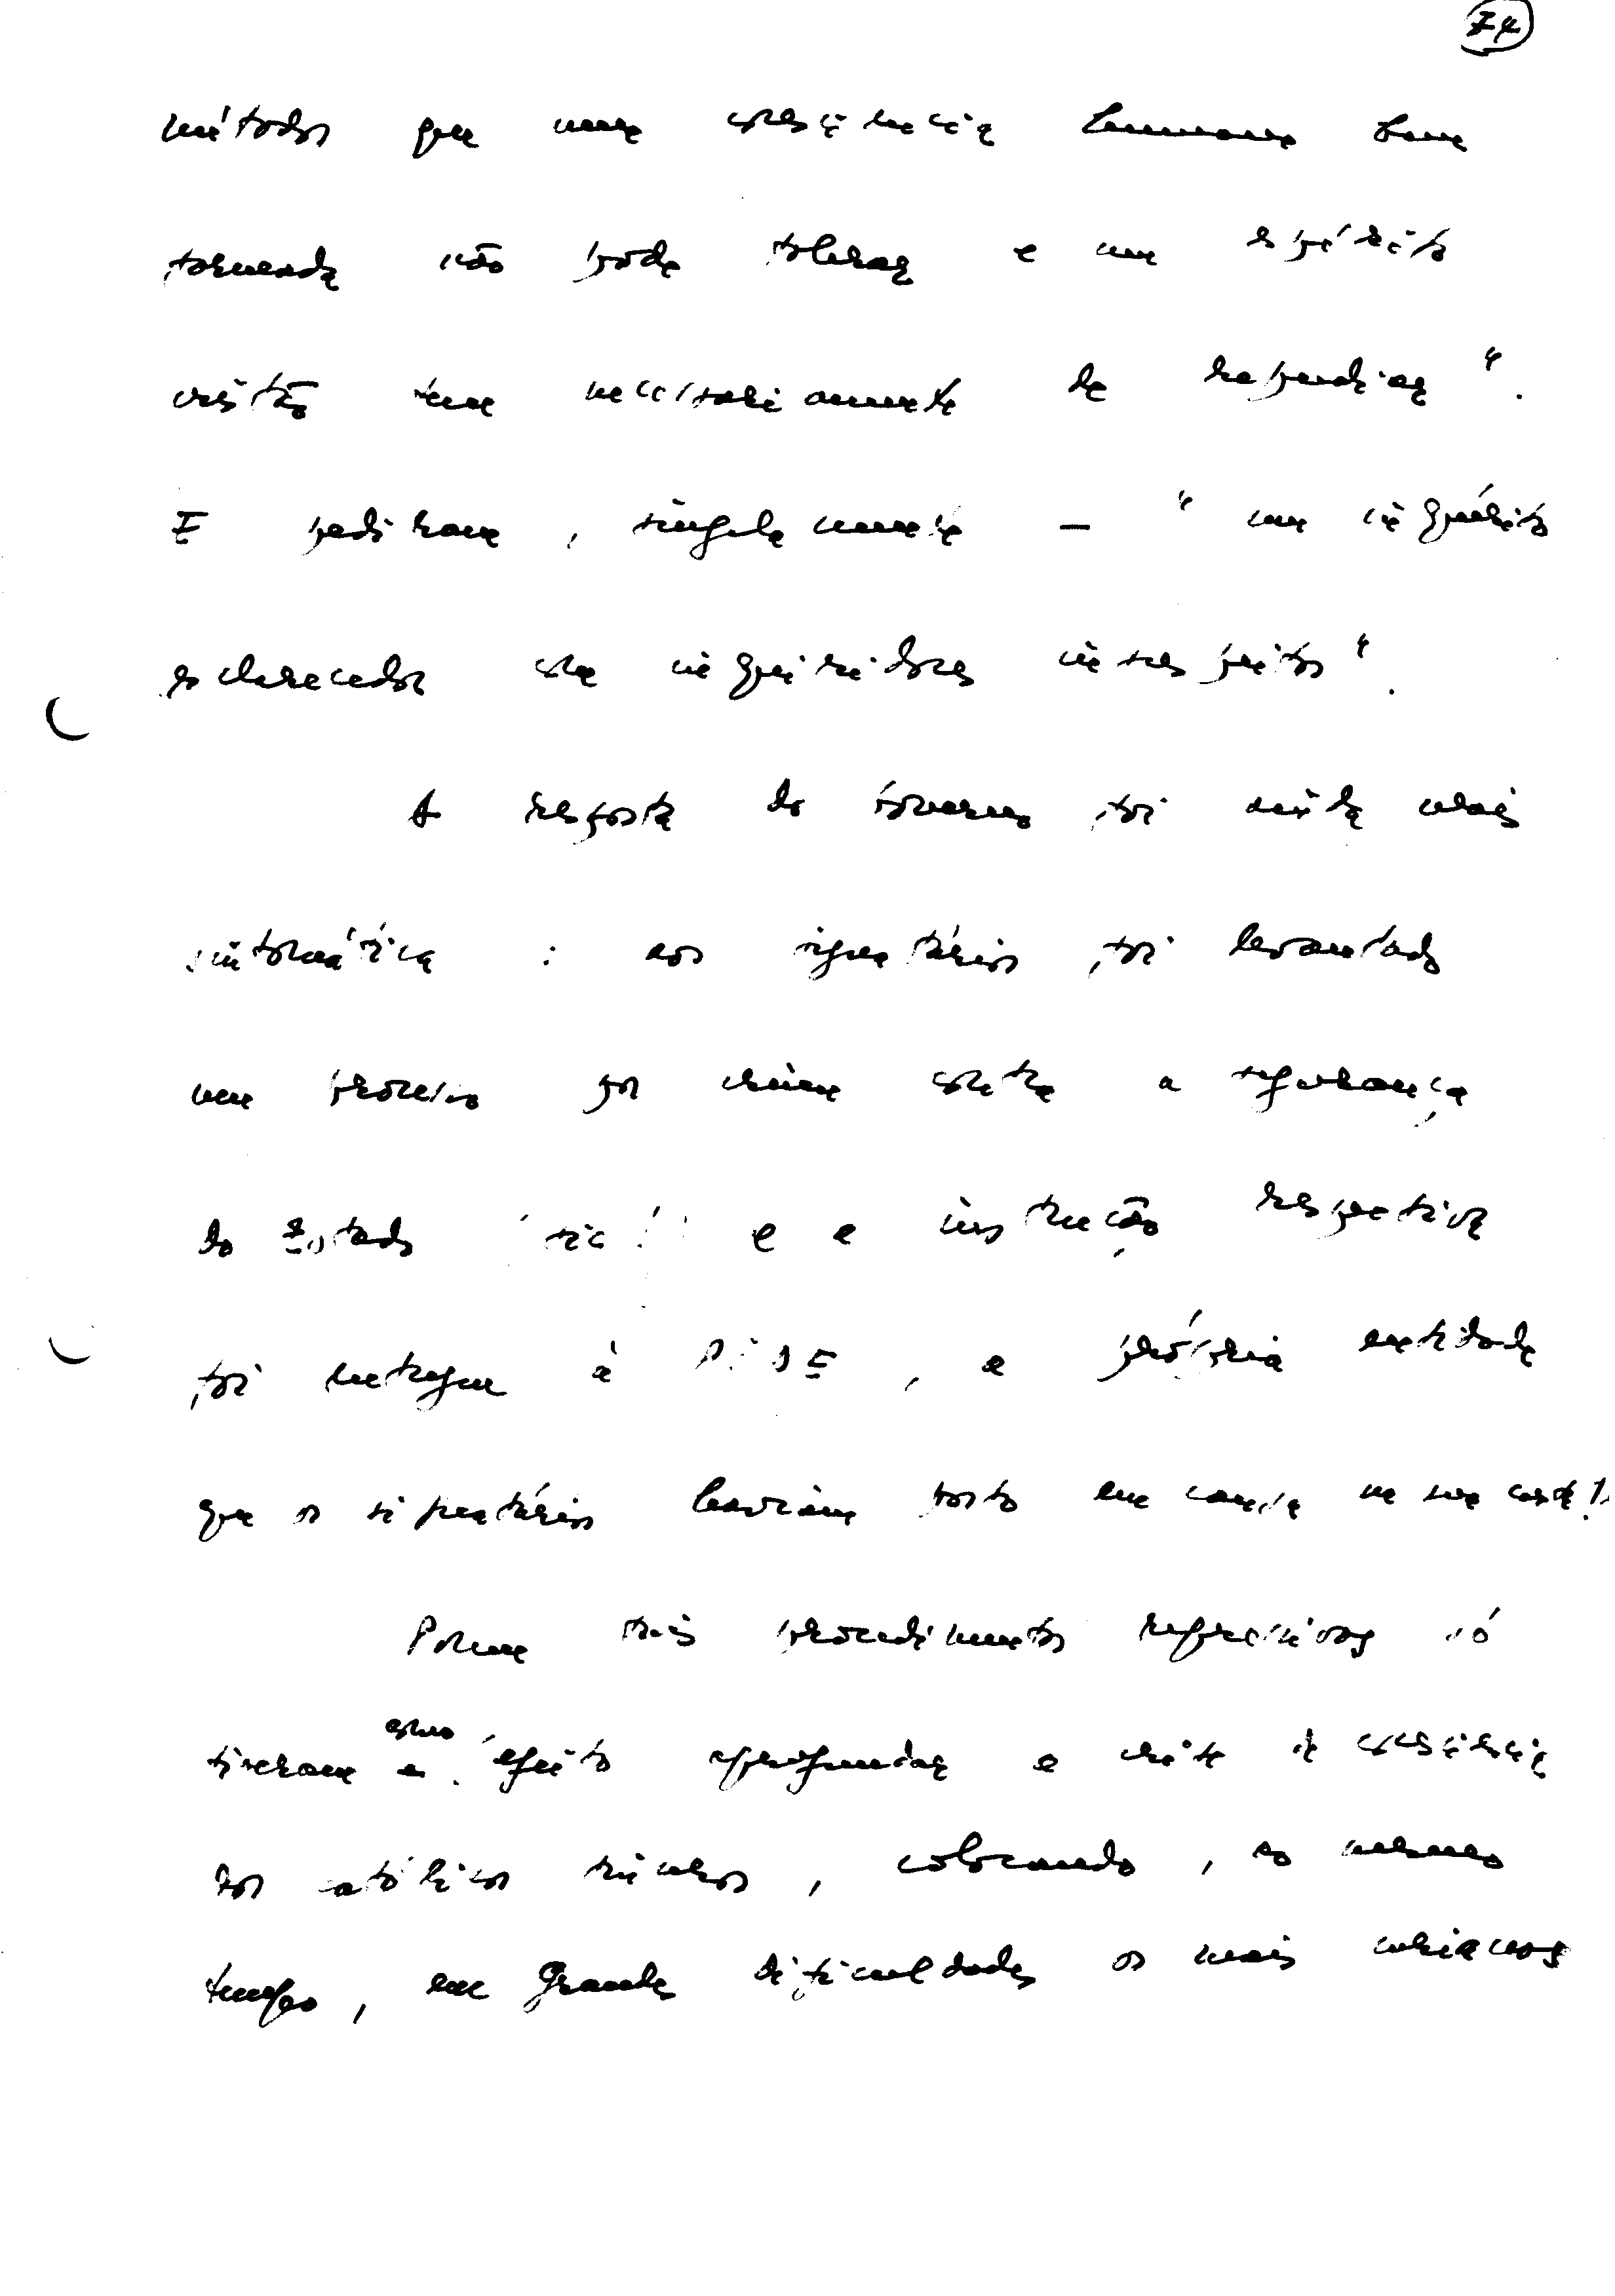 74
métodos que uma consciência humana bem
formada não pode tolerar e um espírito
cristão tem necessariamente de repudiar".
E pediram, singelamente — "um inquérito
esclarecedor com inquiridores insuspeitos".
A resposta do Governo foi ainda mais
sintomática : aos signatários foi levantado
um processo por crime contra a segurança
do Estado (sic!) e a instrução respectiva
foi entregue à PIDE, a própria entidade
que os signatários haviam posto em causa na sua carta!!
Porém tais procedimentos repressivos só
tiveram como efeito aprofundar a crise de consciência
dos católicos sinceros, colocando, ao mesmo
tempo, em grandes dificuldades os mais